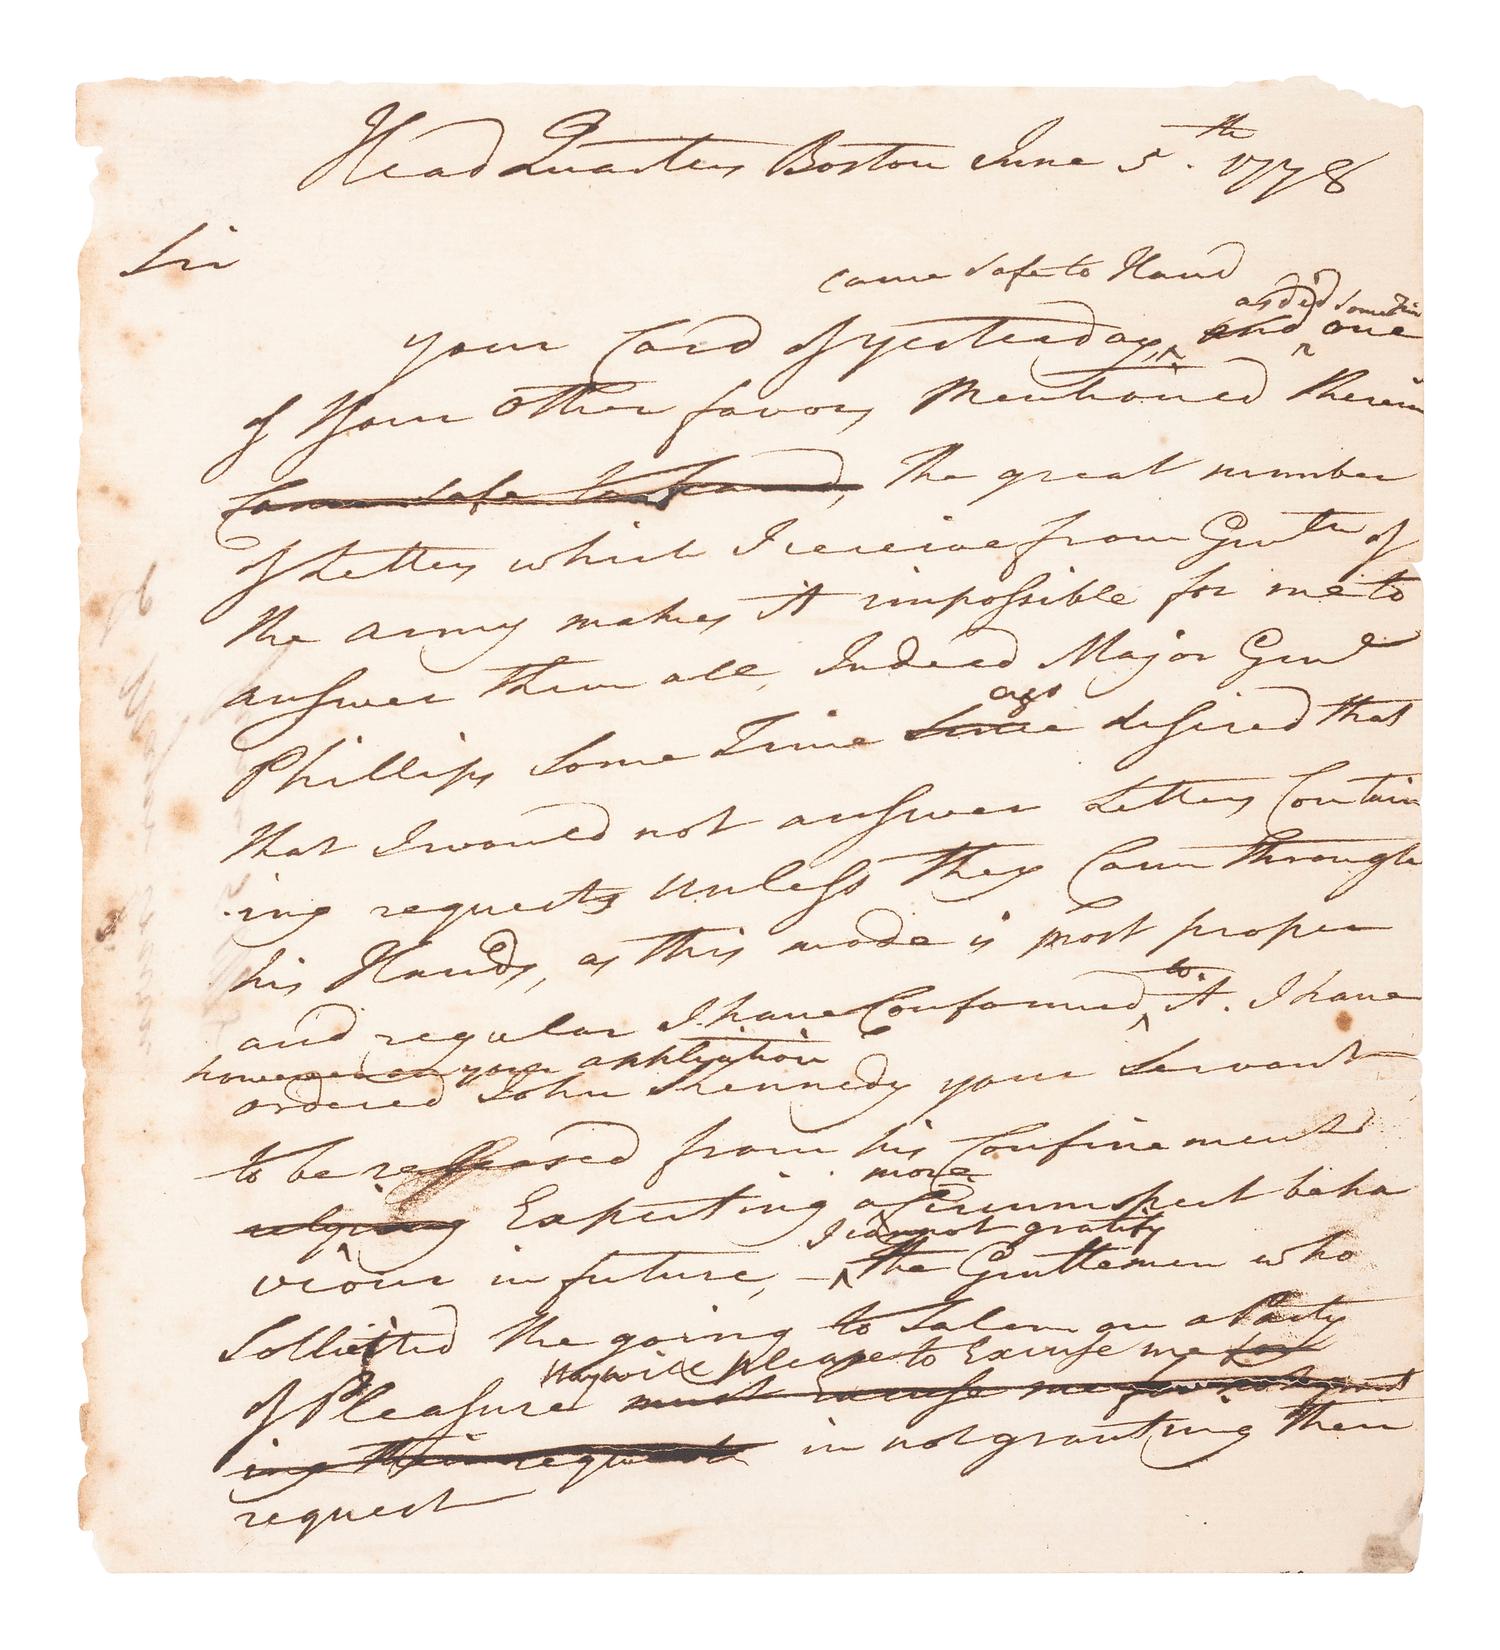 Head Quarters Boston June 5.th 1778
Sir
came safe to Hand
as did some time
your Card of yesterday, and one
of Your Other favors Mentioned Therein
Came safe to Hand, The great number
of Letters which I receive from Gentn of
the army makes it impossible for me to
answer them all, Indeed Major Genl
ago
Phillips some Time since desired that
that I would not answer Letters Contain
ing requests unless they Came through
his Hands, as this mode is most proper
to
and regular I have Conformed it. I have
however on your application
ordered John Kennedy your Servant
to be released from his Confinement
Expecting a
more
Circumspect beha
viour in future, –
I cannot gratify
the Gentlemen who
Sollicitted the going to Salem on a Party
They will please to Excuse me for
of Pleasure must excuse me for not grant
ing their request in not granting their
request